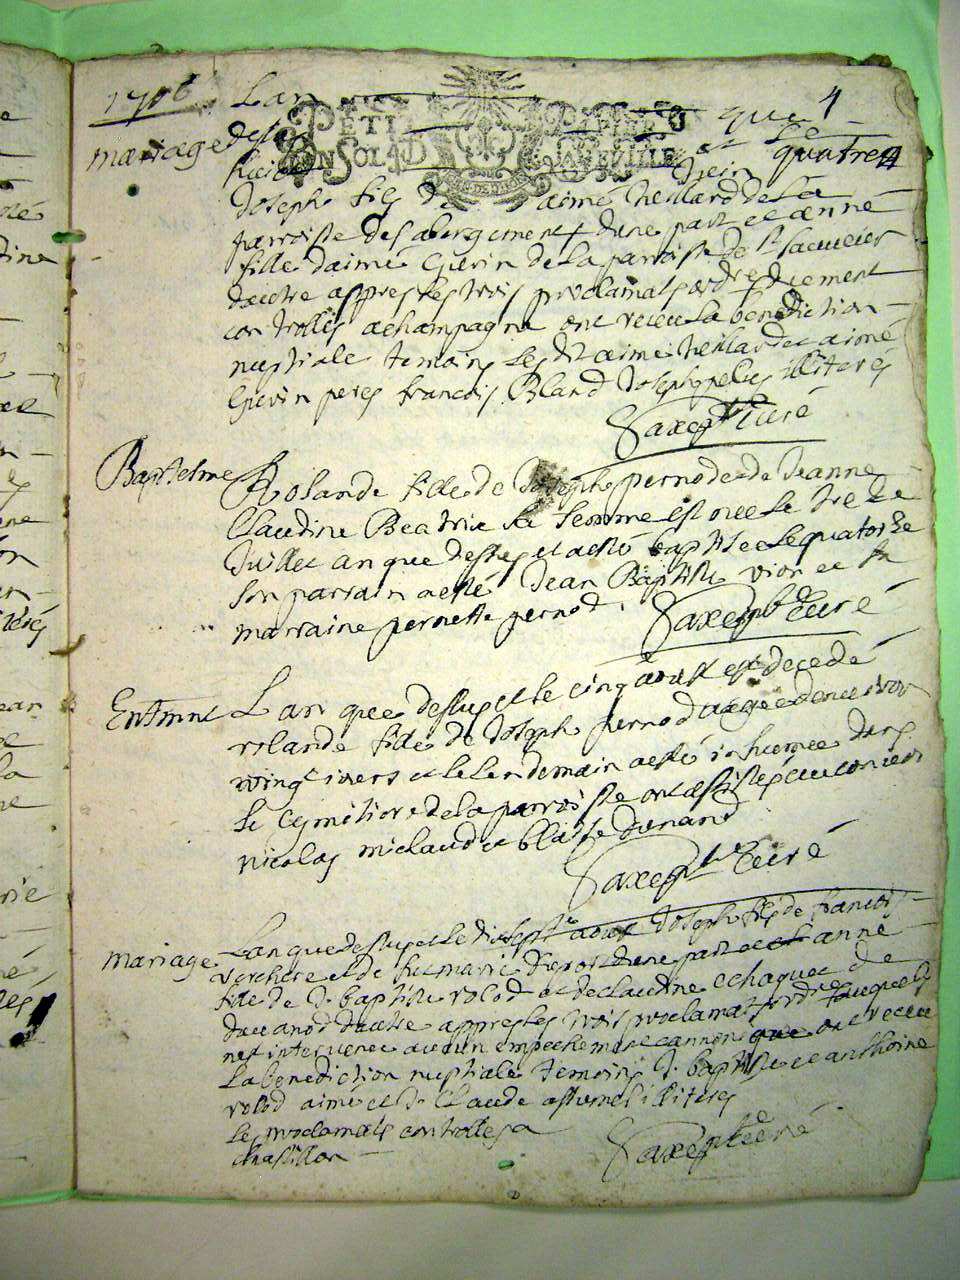 1706
4
L an que
mariage dessus et le quatre
Joseph fils de aimé theillard de La
parroisse des abergement dune part et anne
fille daimé Guerin de la parroisse de St
dautre appres les trois proclamats ordre duement
controllés a champagne ont receu La benediction
nuptiale temoins les dit aimé theillard et aimé
Guerin peres francois Bland Joseph illiteres
Saxept Curé
Baptesme Rolande fille de Joseph pernod et de Jeanne
Claudine Beatrix sa femme est nee le treze
Juillet an que dessus et a esté baptisee le quatorze
son parrain a esté Jean Baptiste vion et sa
marraine pernette pernod
Saxept Curé
L an que dessus et le cinq aoust est decedé
rolande fille de Joseph pernod agee denviron
vingt jours et le lendemain a esté inhumee dans
le cymitiere de la parroisse ont assistés au convoi
nicolas michaud et blaise dunand
Saxept Curé
mariage Lan que dessus et le dixsept aoust Joseph fils de francois
verchere et de fut marie dune part et anne
fille de J. baptiste rolod et de claudine dautre
appres les trois proclamats ordre
nest intervenu aucun empechement cannonique ont receu
La benediction nuptiale temoins J. baptiste et anthoine
rolod aimé et J. Claude illiteres
les proclamats controlles a
chastillon
Saxept Curé